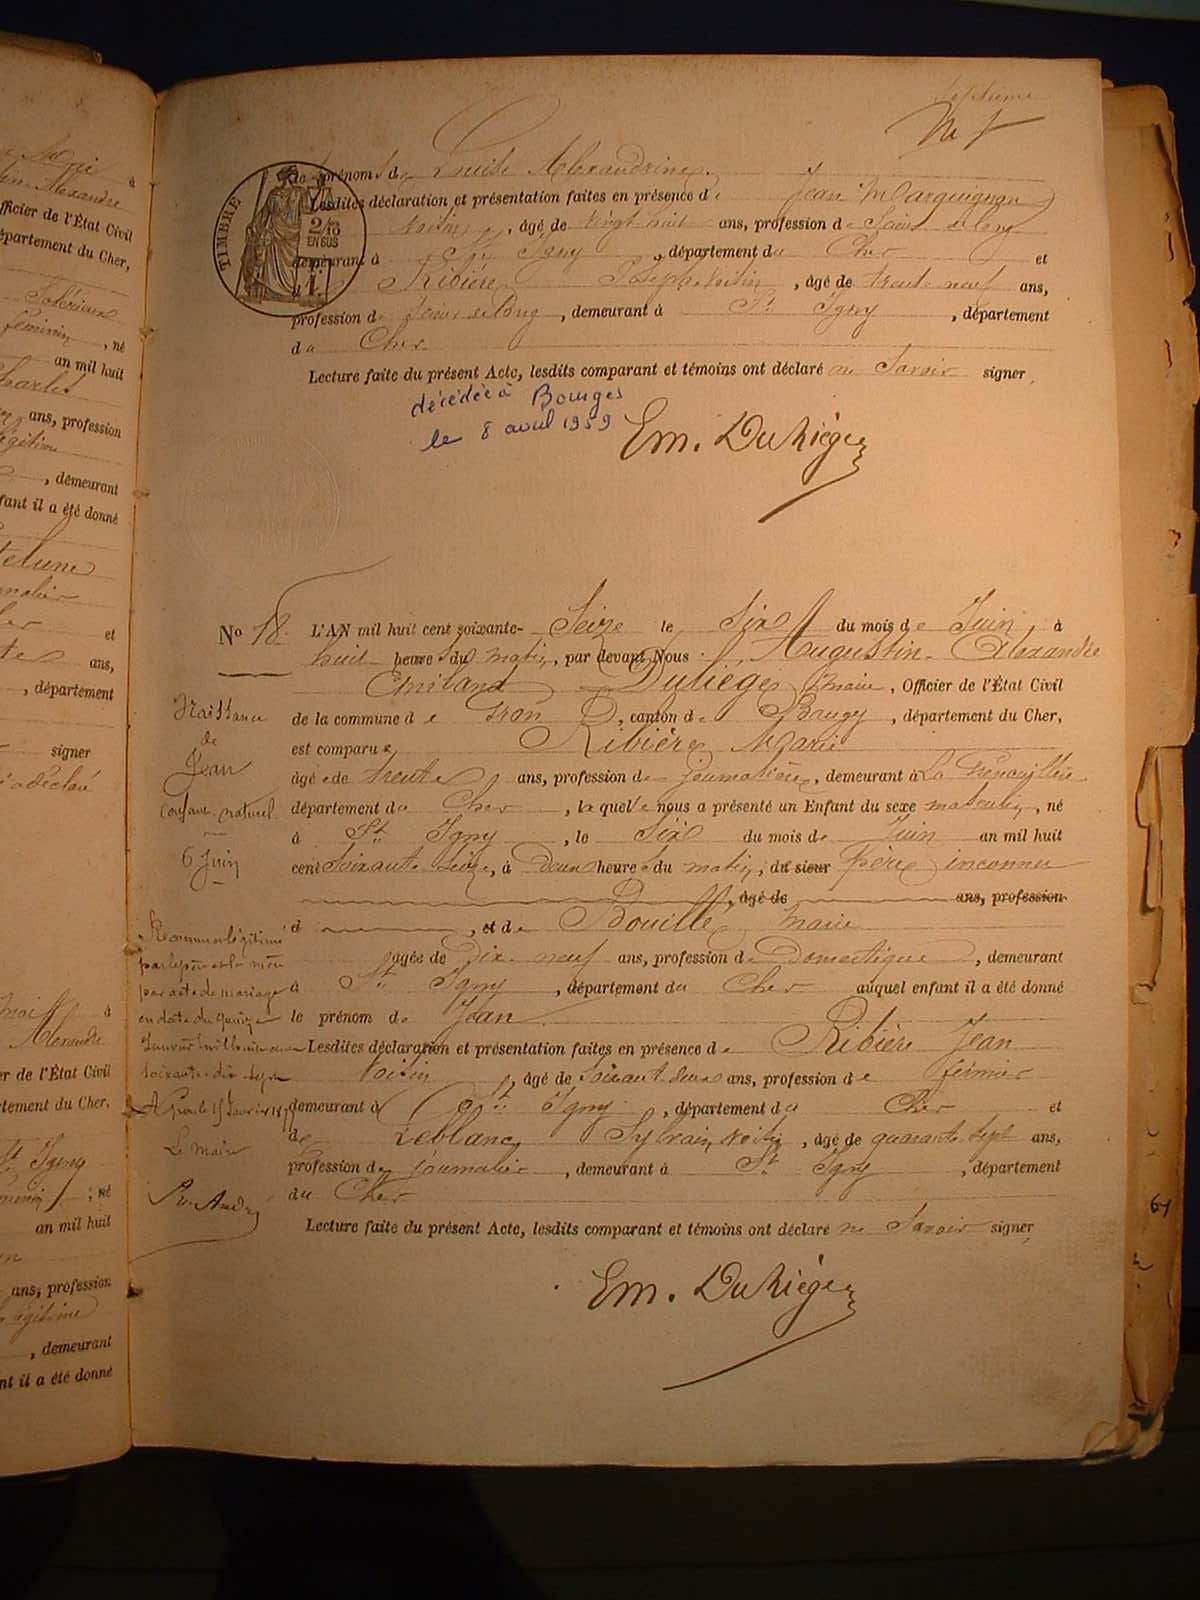 septième
TIMBRE
2/10
EN SUS
le prénoms de Louise Alexandrine
Lesdites déclaration et présentation faites en présence de Jean Marguignon
Voisin, âgé de vingt huit ans, profession de Scieur de long
demeurant à St Igny, département du Cher et
Ribière Joseph voisin, âgé de trente neuf ans,
profession de scieur de long, demeurant à St Igny, département
du Cher
Lecture faite du présent Acte, lesdits comparant et témoins ont déclaré ne Savoir signer.
décédée à Bourges
le 8 avril 1959
Em. Duliège
No 18. L'AN mil huit cent soixante- Seize le Six du mois de Juin, à
huit heures du matin, par devant Nous Augustin Alexandre
Emiland Duliège Maire, Officier de l'État Civil
de la commune de Cron, canton de Baugy, département du Cher,
est comparue Ribière Marie
âgée de trente ans, profession de journalière, demeurant à La
département du Cher, laquelle nous a présenté un Enfant du sexe masculin, né
à St Igny, le Six du mois de Juin an mil huit
cent Soixante Seize, à Deux heures du matin, du sieur Père inconnu
, âgé de ans, profession
d , et de Bouille Marie
âgée de Dix neuf ans, profession de Domestique, demeurant
à St Igny, département du Cher auquel enfant il a été donné
le prénom de Jean
Lesdites déclaration et présentation faites en présence de Ribière Jean
Voisin, âgé de Soixante deux ans, profession de fermier
demeurant à St Igny, département du Cher et
de Leblanc Sylvain voisin, âgé de quarante sept ans,
profession de journalier, demeurant à St Igny, département
du Cher
Lecture faite du présent Acte, lesdits comparant et témoins ont déclaré ne Savoir signer
Em. Duliège
Naissance
de
Jean
enfant naturel
6 Juin
Reconnu légitimé
par le père et la mère
par acte de mariage
en date du quinze
Janvier mil huit cent
soixante dix sept
Le Maire
officier de l'État Civil
département du Cher,
féminin, né
an mil huit
Charles
ans, profession
légitime
, demeurant
enfant il a été donné
et
ans,
, département
signer
a déclaré
Alexandre
er de l'État Civil
département du Cher,
St Igny
; né
an mil huit
ans, profession
légitime
, demeurant
nt il a été donné